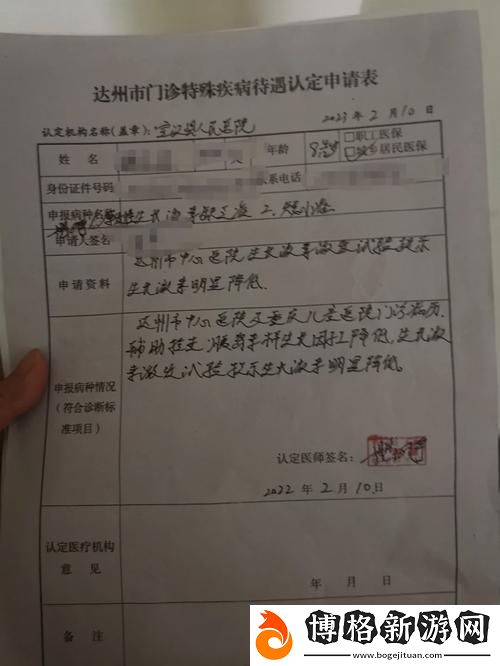 达州市门诊特殊疾病待遇认定申请表
认定机构名称(盖章): 宣汉县人民医院 2023 年 2 月 10 日
姓 名 年龄 8岁 □职工医保
□城乡居民医保
身份证件号码 系电话
申报病种名称 生长激素缺乏症 2.
申请人签名
申请资料 达州市中心医院生长激素激发试验提示
生长激素明显降低.
申报病种情况
(符合诊断标
准项目)
达州市中心医院及重庆儿童医院门诊病历.
辅助检查:胰岛素样生长因子降低,生长激
素激发试验提示生长激素明显降低.
认定医师签名:
2022 年 2 月 10 日
认定医疗机构
意 见
年 月 日
备 注
博格新游网
www.bogejituan.com